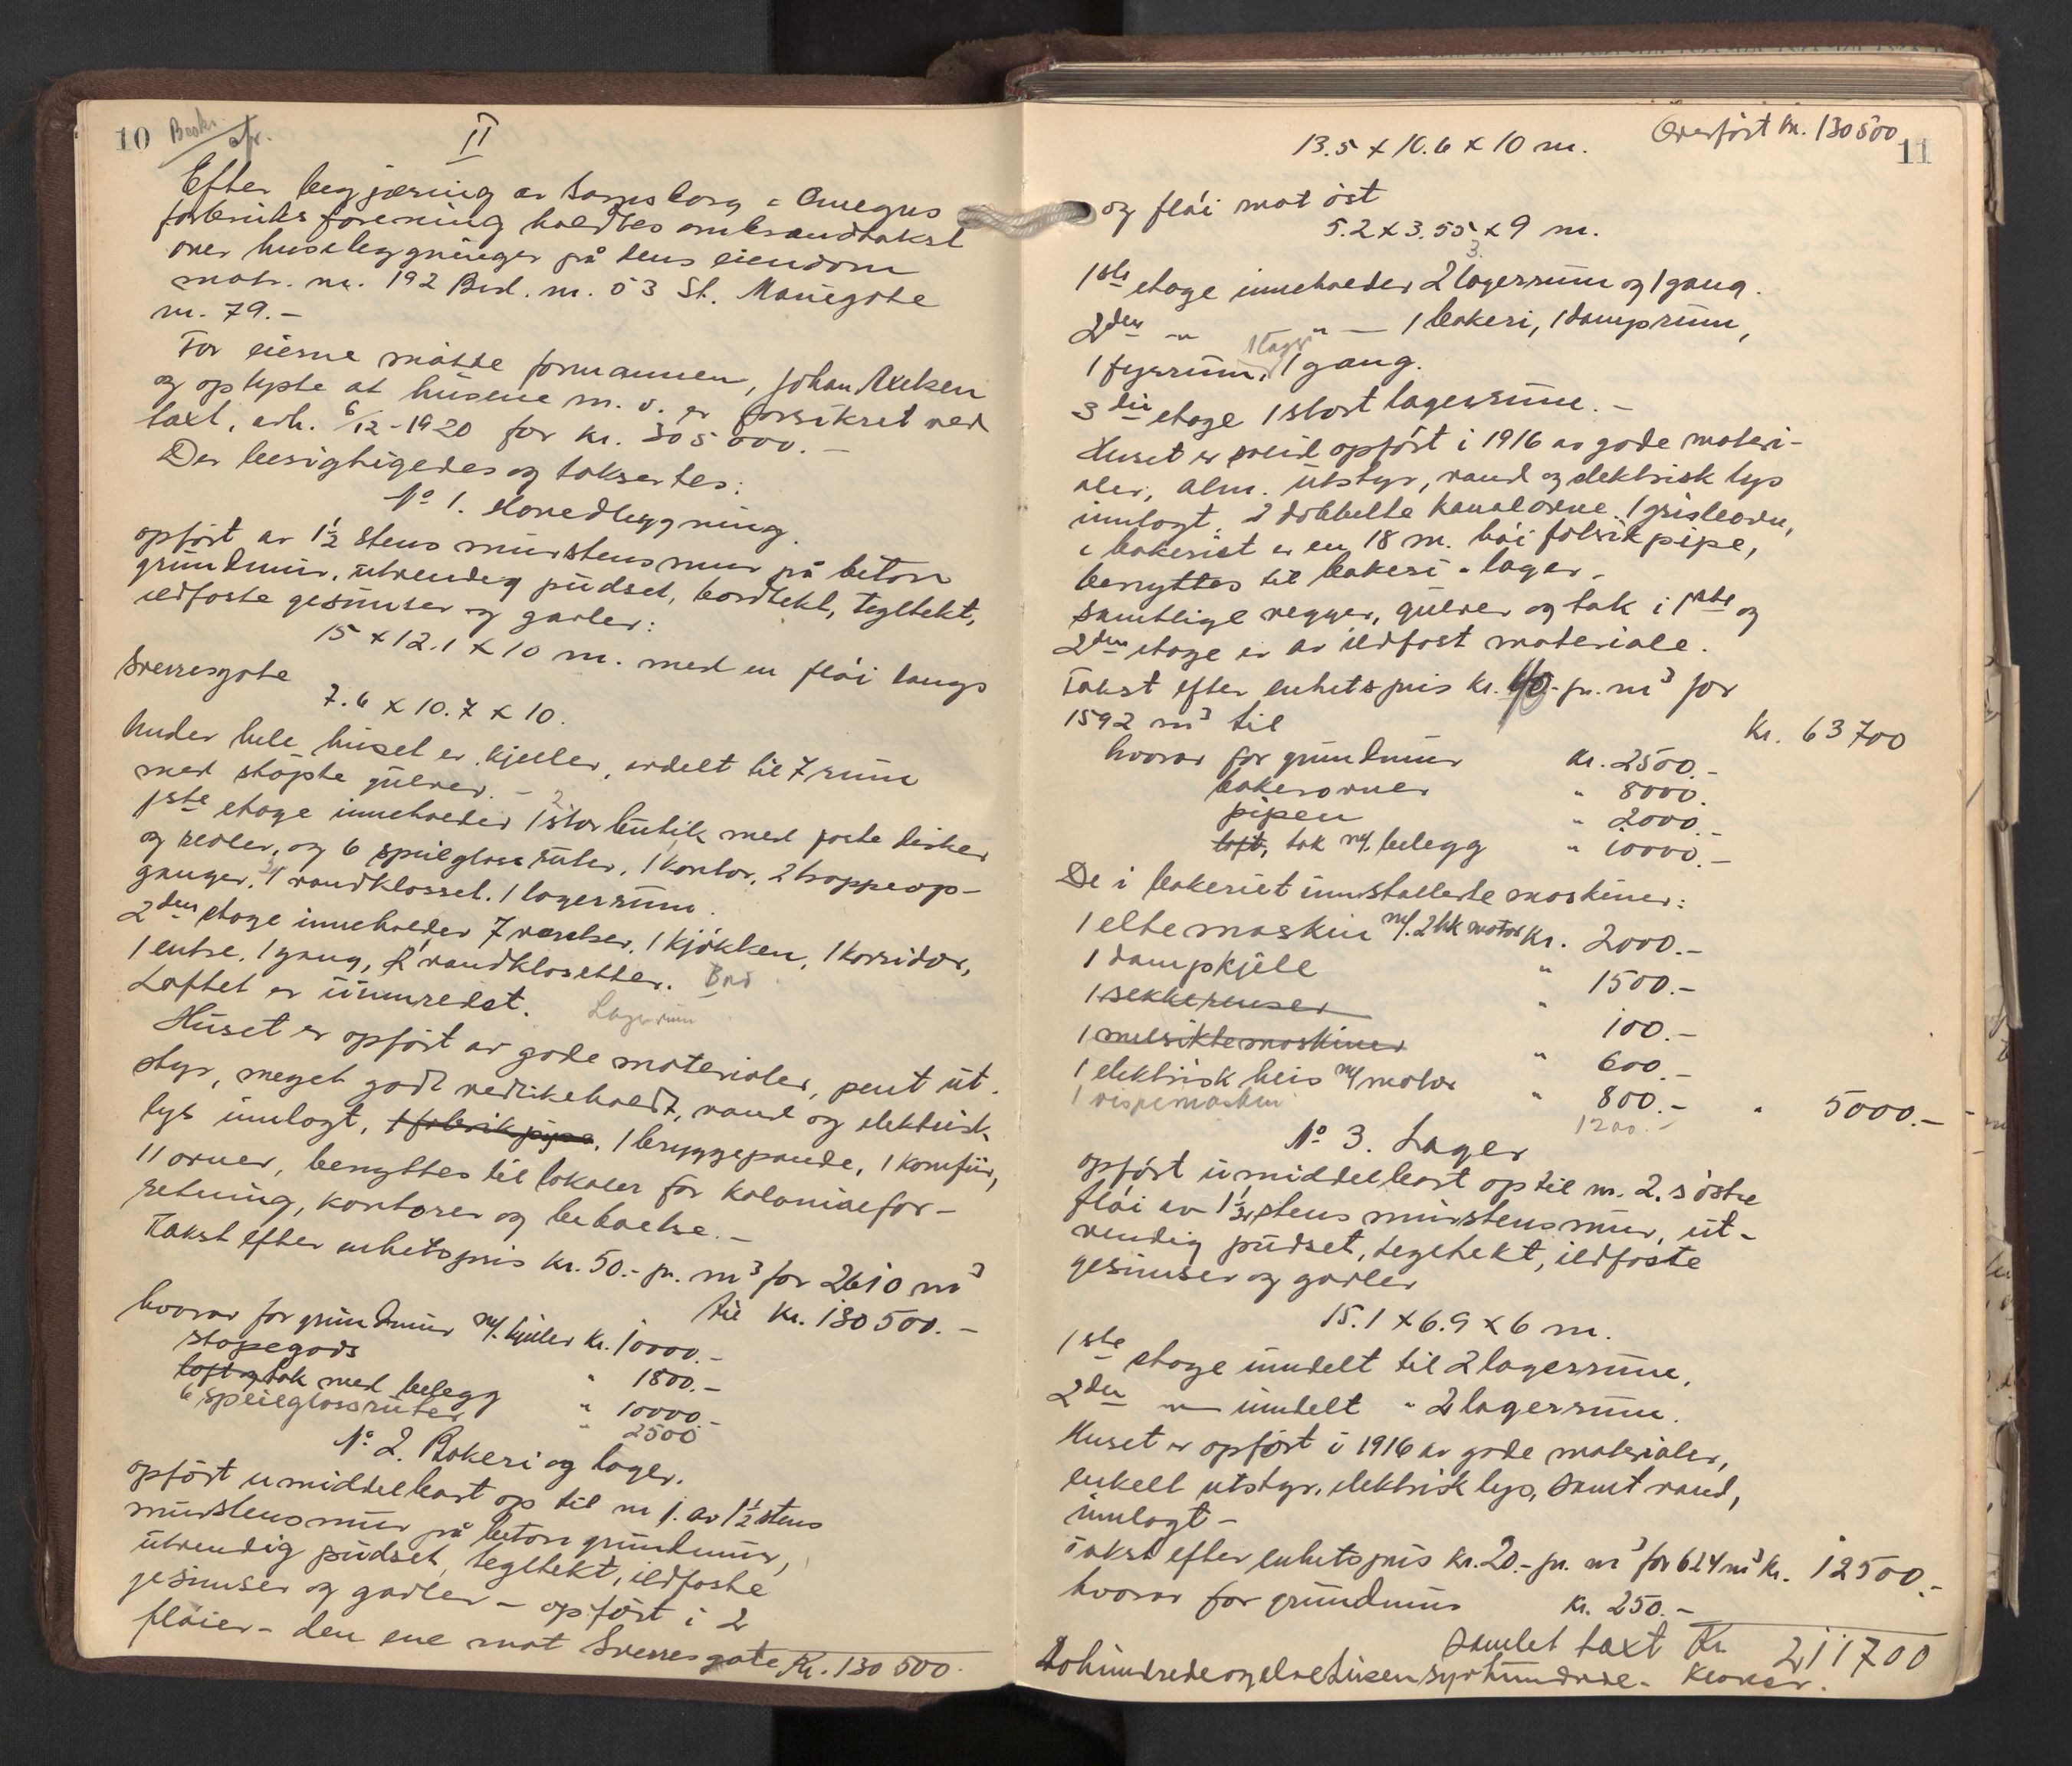 10 Beskr. afr.
II
Efter begjæring av Sarpsborg & Omegns
forbruksforening holdtes ombrandtakst
over husebygninger på dens eiendom
matr. nr. 192 Brd. nr. 53 St. Mariegate
nr. 79.-
For eierne møtte formannen, Johan
og oplyste at husene m. v. er forsikret ved
taxt, avh. 6/12-1920 for kr. 305000.-
Der besigtigedes og taksertes:
No 1. Hovedbygning.
opført av 1½ stens murstensmur på beton
grundmur, utvendig pudset, bordtekt, tegltekt,
ildfaste gesimser og gavler:
15 x 12.1 x 10 m. med en fløi langs
Sverresgate
7.6 x 10.7 x 10.
Under hele huset er kjeller, avdelt til 7 rum
med støpte gulver. -
1ste etage inneholder 1 stor butik med faste disker
og reoler, og 6 speilglass ruter, 1 kontor, 2 trappeop-
ganger, 1 vandklosset. 1 lagerrum.
2den etage inneholder 7 værelser, 1 kjøkken, 1 korridor,
1 entre. 1 gang, 2 vandklosetter. Bad
Loftet er uinnredet. Lagerrum
Huset er opført av gode materialer, pent ut-
styr, meget godt vedlikeholdt, vand og elektrisk
lys innlagt, 1 fabrikpipe, 1 bryggepande, 1 komfür,
11 ovner, benyttes til lokaler for kolonialfor-
retning, kontorer og beboelse.-
Takst efter enhetspris kr. 50.- pr. m³ for 2610 m³
til kr. 130500.-
hvorav for grundmur m/. kjeller kr. 10000.-
støpegods " 1800.-
loft og tak med belegg " 10000.-
6 speilglassruter " 2500
No 2. Bakeri og lager.
opført umiddelbart op til nr 1. av 1½ stens
murstensmur på beton grundmur,
utvendig pudset, tegltekt, ildfaste
gesimser og gavler - opført i 2
fløier - den ene mot Sverresgate Kr. 130 500.
Overført kr. 130 500
11
13.5 x 10.6 x 10 m.
og fløi mot øst
5.2 x 3.55 x 9 m.
3.
1ste etage inneholder 2 lagerrum og 1 gang.
2den " - " - 1 bakeri, 1 damprum,
1 lager
1 fyrrum, 1 gang.
3die etage 1 stort lagerrum.-
Huset er opført i 1916 av gode materi-
aler, alm. utstyr, vand og elektrisk lys
innlagt. 2 dobbelte kanalovne.
i bakeriet er en 18 m. høi fabrikpipe,
benyttes til bakeri & lager.
Samtlige vegger, gulver og tak i 1ste og
2den etage er av ildfast materiale.
Takst efter enhetspris kr. 40.- pr. m³ for
1592 m³ til kr. 63700
hvorav for grundmur kr. 2500.-
bakerovner " 8000.
pipen " 2000.-
loft, tak m/. belegg " 10000.-
De i bakeriet innstallerte maskiner:
1 eltemaskin m/. 2 hk motor kr. 2000.-
1 dampkjele " 1500.-
1 sekkerenser " 100.-
1 melsiktemaskiner " 600.-
1 elektrisk heis m/ motor " 800.- " 5000.-
1 vispemaskin 1200.-
No 3. Lager
opført umiddelbart op til nr. 2.s østre
fløi av 1½ stens murstensmur, ut-
vendig pudset, tegltekt, ildfaste
gesimser og gavler
15.1 x 6.9 x 6 m.
1ste etage inndelt til 2 lagerrum.
2den - inndelt " 2 lagerrum.
Huset er opført i 1916 av gode materialer,
enkelt utstyr, elektrisk lys, samt vand,
innlagt -
Takst efter enhetspris kr. 20.- pr. m³ for 624 m³ kr. 12500.-
hvorav for grundmur kr. 250.-
Samlet taxt Kr 211700
Tohundredeogelvetusensyvhundrede - kroner.